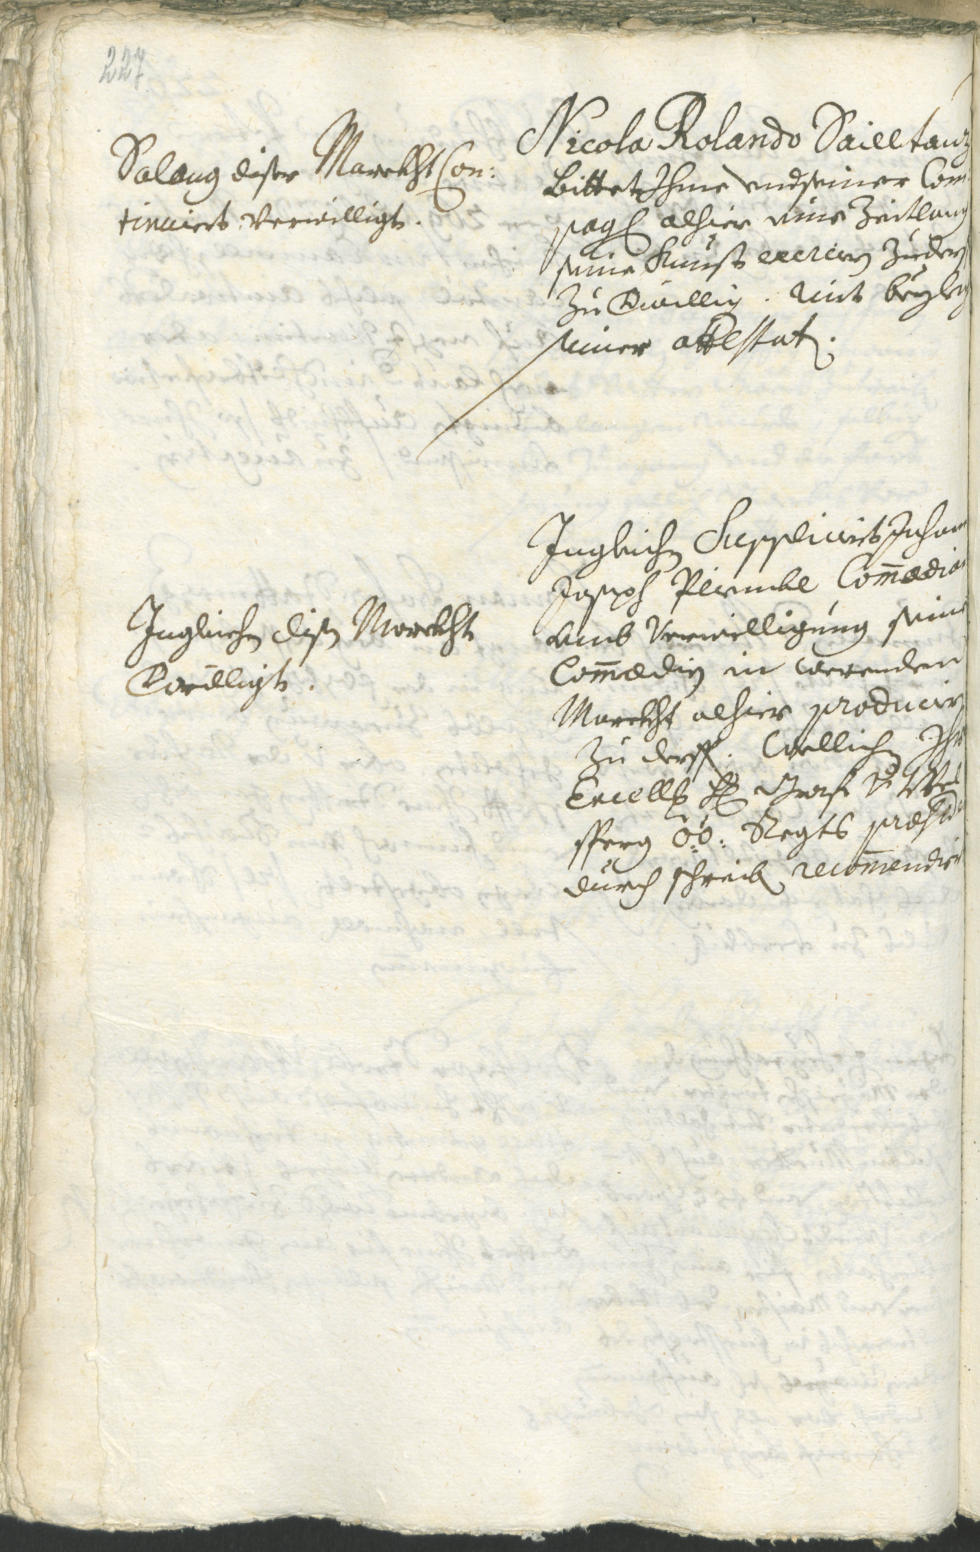 227
Nicola Rolando Sailltanz
Bittet Ihme und seiner Com
pag: alhier eine Zeitlang
seine Kunst exerciern zuderf
zu Bwilligen. mit beyleg
seiner attestat.
Solang diser Marckht Con:
tinuiert verwilligt.
Ingleichen Supplicirt Johan
Joseph Commœdia
umb Verwilligung seine
Commœdien in werenden
Marckht alhier produciern
zu derffen. Wellichen Ihr
Excell: H: Graf v:
sperg ÖÖ: Regts præsid
durch schreib: recommendirt
Ingleichen disen Marckht
Bwilligt.